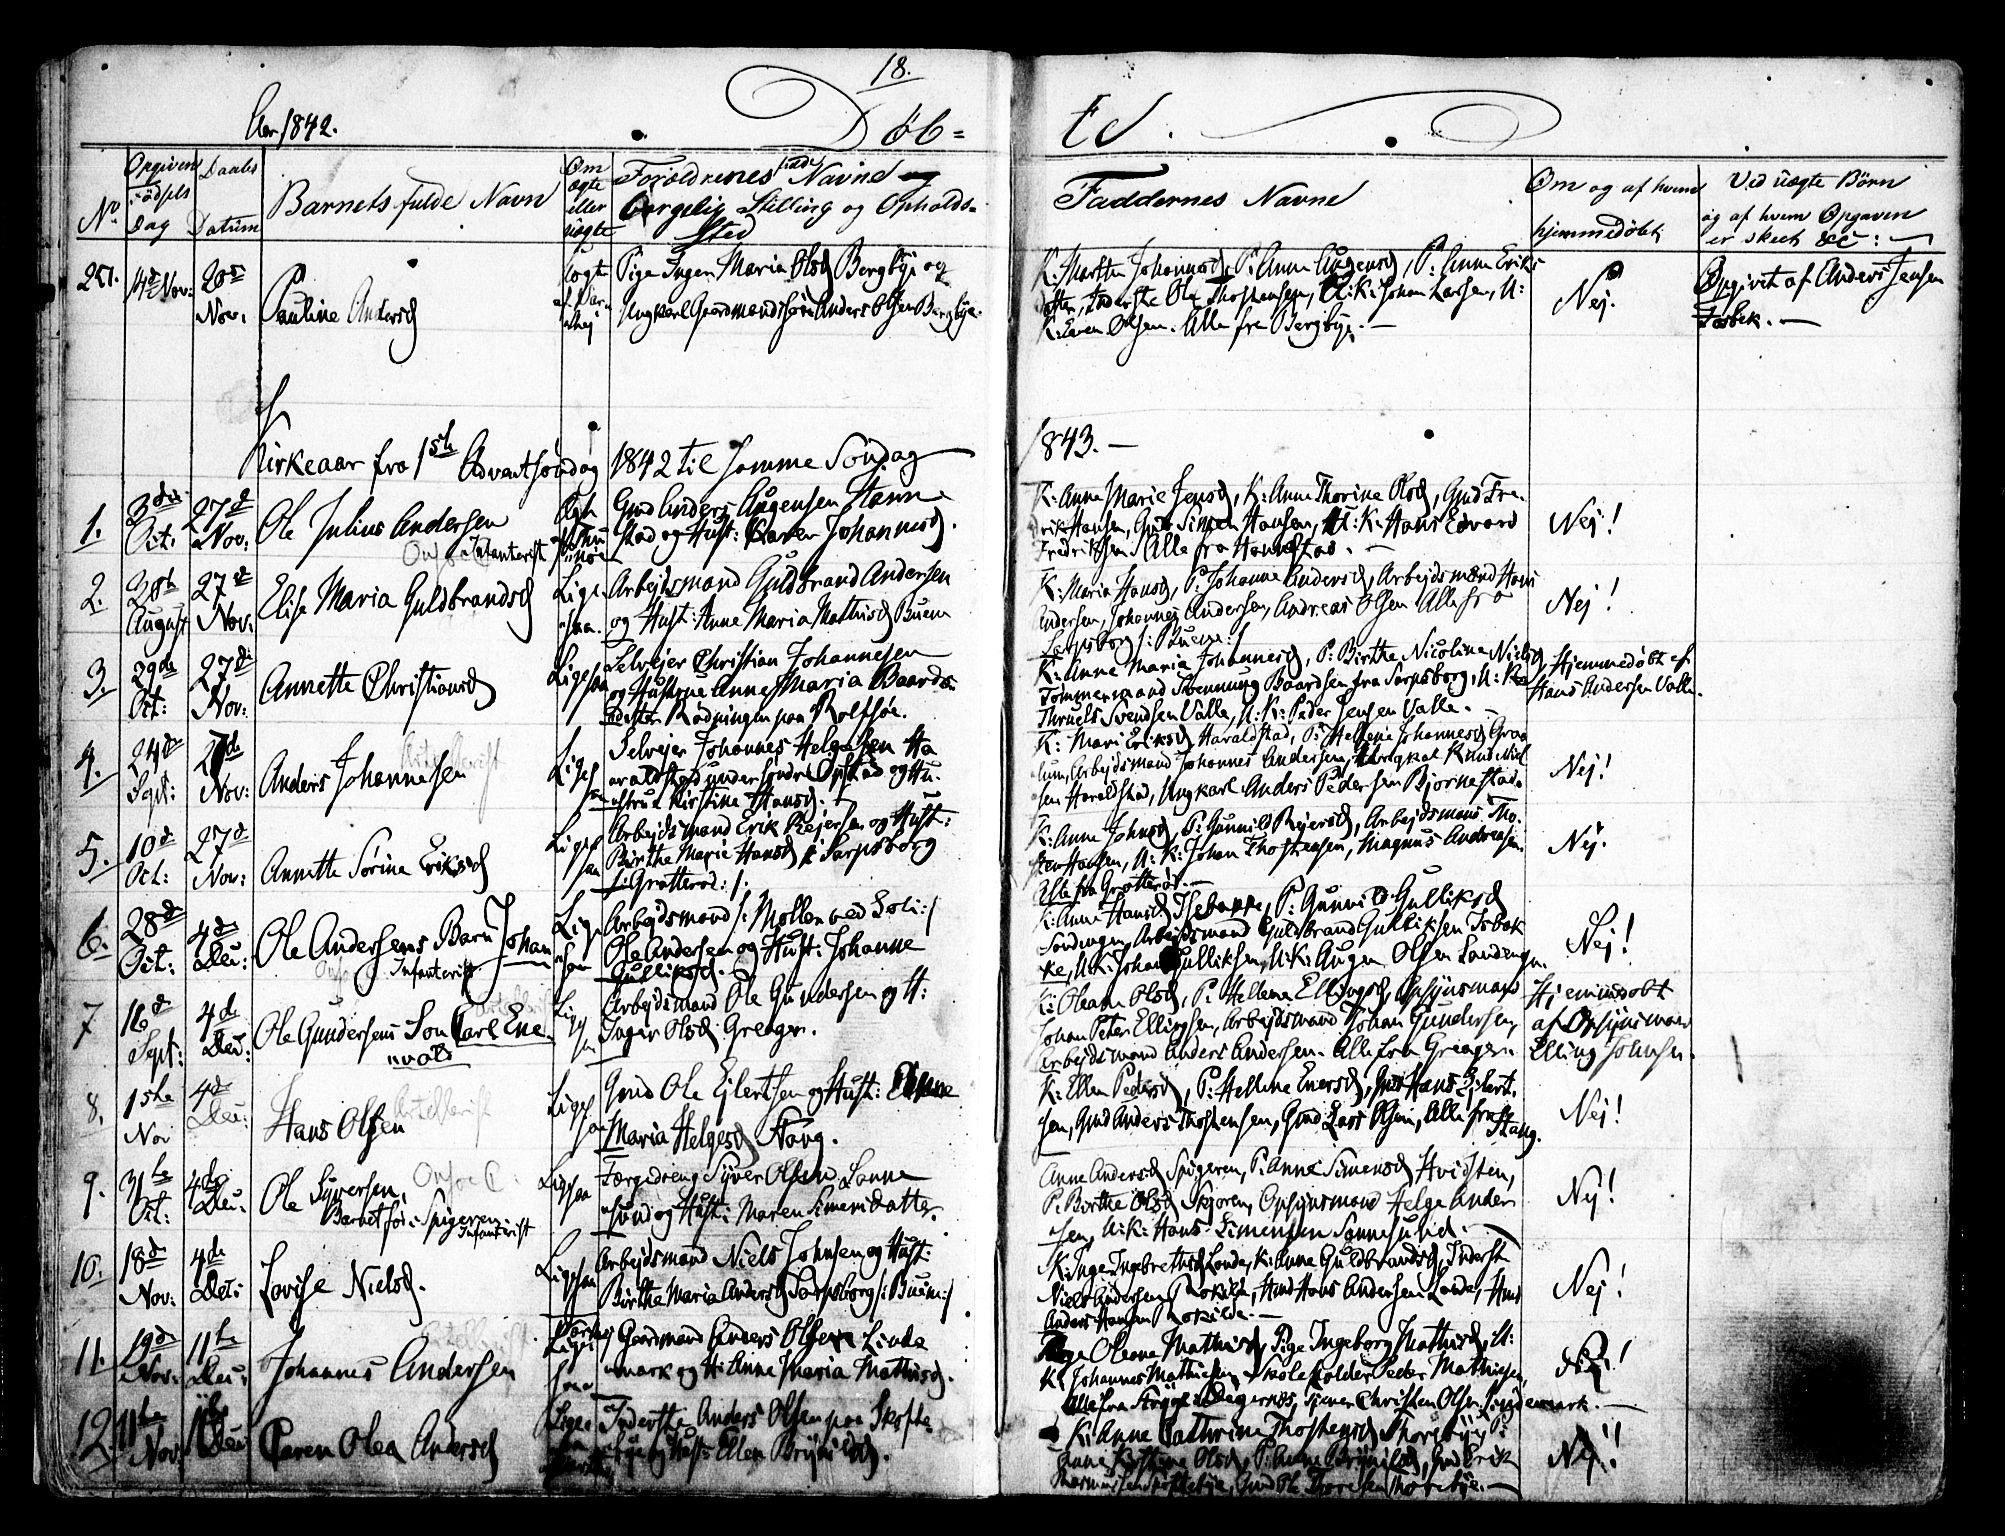 18.
Aar 1842.
Døb=
te.
No
Opgiven
Fødsels
Dag
Daabs
Datum
Barnets fulde Navn
Om
ægte
eller
uægte
Forældrenes fulde Navne og
borgelig Stilling og Opholds-
Sted
Faddernes Navne
Om og af hvem
hjemmedøbt
Ved uægte Børn
og af hvem Opgaven
er skeet &c:
14de Nov:
20de
Nov:
Pauline Andersd
uægte
Pige Inger Maria Olsd Bergbye og
Ungkarl Gaardmandssøn Anders Olsen Bergbye.
K: Marthe Johannesd, P: Anne Augensd, P: Anne Eriks
datter, Inderste Ole Thostensen, U: K: Johan Larsen, U:
K: Even Olsen. Alle fra Bergbye.
Nej.
Opgivet af Anders Jensen
Kirkeaar fra 1ste Adventsøndag 1842 til samme Søndag
1843.
1.
3die
Oct:
27de
Nov:
Ole Julius Andersen
Onsøe Infanterist
Ægte
Gmd Anders Augensen Hanne
stad og Hust: Karen Johannesd.
K: Anne Marie Jensd, K: Anne Thorine Olsd, Gmd Fre-
drik Hansen, Gmd Simen Hansen, U: K: Hans Edvard
Fredriksen Alle fra Hannestad.
Nej!
2.
28de
August
27de
Nov:
Elise Maria Guldbrandsd
Lige-
saa.
Arbejdsmand Guldbrand Andersen
og Hust: Anne Maria Mathisd Buen
K: Maria Hansd, P: Johanne Andersd, Arbejdsmænd Hans
Andersen, Johannes Andersen, Andreas Olsen Alle fra
Sarpsborg /: Buene :/
Nej!
3.
29de
Oct:
27de
Nov:
Annette Christiansd
Ligesaa
Selvejer Christian Johannesen
og Hustrue Anne Maria Baards-
datter Rødningen paa Rolfsøe.
K: Anne Maria Johannesd, P: Birthe Nicoline Nielsd
Tømmermand Svennung Baardsen fra Sarpsborg, U: K:
Thruels Svendsen Valle, U: K: Peder Jensen Valle.
Hjemmedøbt af
Hans Andersen Valle.
4.
24de
Sept:
27de
Nov:
Anders Johannesen
Artellerist
Ligesaa
Selvejer Johannes Helgesen Ha
araldstad under søndre Opstad og Hu-
strue Kirstine Hansd.
K: Mari Eriksd Haraldstad, P: Hellene Johannesd Graa
lum, Arbejdsmand Johannes Andersen, Ungkal Knud Niel
sen Haraldstad, Ungkarl Anders Pedersen Bjørnestad.
Nej!
5.
10de
Oct:
27de
Nov:
Annette Sorine Eriksd
Ligesaa
Arbejdsmand Erik Rejersen og Hust:
Birthe Marie Hansd Sarpsborg
/: Grotterød :/.
K: Anne Johnsd, P: Gunnild Rejersd, Arbejdsmand Tho-
sten Hansen, U: K: Johan Thostensen, Magnus Andreasen.
Alle fra Grotterød.
Nej.
6.
28de
Oct:
4de
Dec:
Ole Andersens Barn Johan
Infanterist
Ligesaa
Arbejdsmand /: Møllen ved Soli :/
Ole Andersen og Hust: Johanne
Gulliksd.
K: Anne Hansd Isebakke, P: Gunnild Gulliksd
Sandengen, Arbejdsmand Guldbrand Gulliksen Isebak
ke, U: K: Johan Gulliksen, U: K: Augen Olsen Sandengn.
Nej!
7
16de
Sept:
4de
Dec:
Ole Gundersens Søn Carl Ene
vold
Ligesaa
Arbejdsmand Ole Gundersen og H:
Inger Olsd Greager.
K: Oleane Olsd, P: Hellene Ellingsd, Opsynsmand
Johan Peter Ellingsen, Arbejdsmand Johan Gundersen,
Arbejdsmand Anders Andersen. Alle fra Greager.
Hjemmedøbt
af Opsynsmand
Elling Johnsen.
8.
1ste
Nov
4de
Dec:
Hans Olsen
Artellerist
Ligesaa
Gmd Ole Ejlertsen og Hust: Anne
Maria Helgesd Stang.
K: Ellen Pedersd, P: Hellene Enersd, Gmd Hans Ejlert-
sen, Gmd Anders Thostensen, Gmd Lars Olsen, Alle fra Stang.
Nej!
9.
31te
Oct:
4de
Dec:
Ole Syversen
Onsøe
Infanterist
Ligesaa
Færgedreng Syver Olsen Sanne
sund og Hust: Maren Simensdatter.
Anne Andersd Spigeren, P: Anne Simensd Hvidsten,
P: Birthe Olsd Skjøren, Opsynsmand Helge Ander
sen, U: K: Hans Simensen Sannesund.
Nej!
10.
18de
Nov:
4de
Dec:
Lovise Nielsd.
Ligesaa
Arbejdsmand Niels Johnsen og Hust:
Birthe Maria Andersd Sarpsborg /: Buen :/
K: Inge Ingebrethsd Lande, K: Anne Guldbrandsd, Inderst
Niels Andersen Roskilde, Hmd Hans Andersen Lande, Hmd
Anders Hansen Roskilde.
Nej!
11.
19de
Nov:
11te
Dec:
Johannes Andersen
Lige
saa
Gaardmand Anders Olsen Linde
mark og H: Anne Maria Mathisd.
Pige Oleane Mathisd, Pige Ingeborg Mathisd, U:
K: Johannes Mathiesen, Skoleholder Peder Mathiesen,
Alle fra Degernæs, Tjener Christen Olsen Lindemark.
Nej!
12.
11te
Nov:
11te
Dec:
Karen Olea Andersd
Lige
Inderste Anders Olsen paa Skofte-
bye og Hust: Ellen Brynildsd.
K: Anne Cathrine Thostensd Thorsbye, P:
Anne Kirstine Olsd, P: Anne Brynildsd, Gmd Erik
Rasmussen Skoftebye, Gmd Ole Thoresen Thorsbye.
Nej!